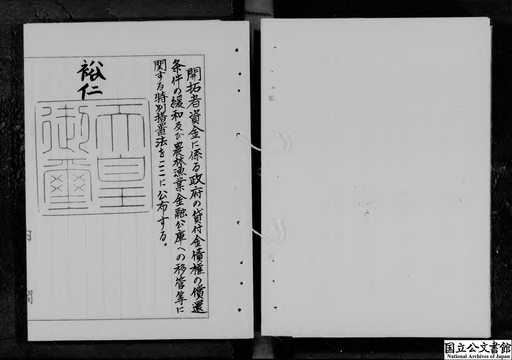 開拓者資金に係る政府の貸付金債権の償還
条件の緩和及び農林漁業金融公庫への移管等に
関する特別措置法をここに公布する。
裕仁
天皇
御璽
国立公文書館
National Archives of Japan